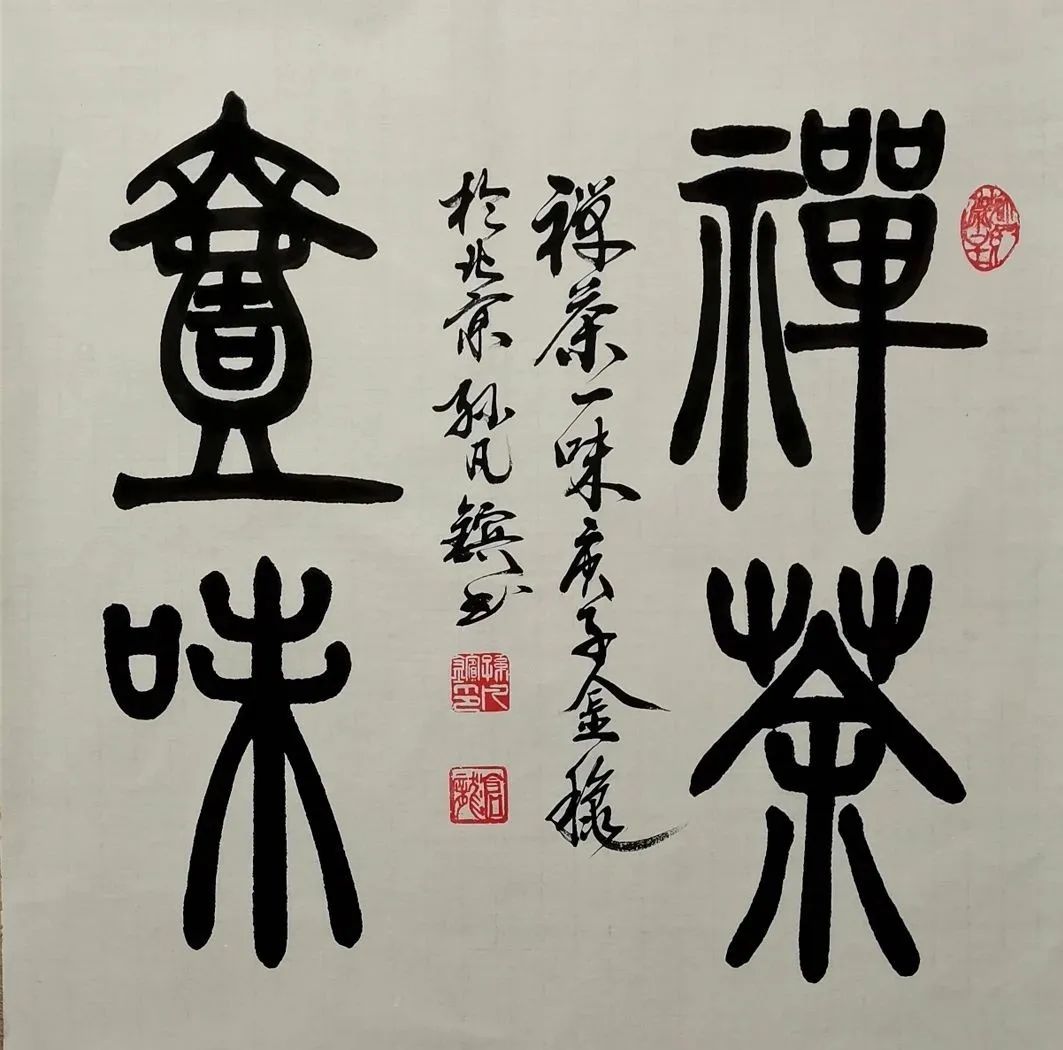 禪茶
壹味
禅茶一味庚子金穐
於北京孙凡鑌书